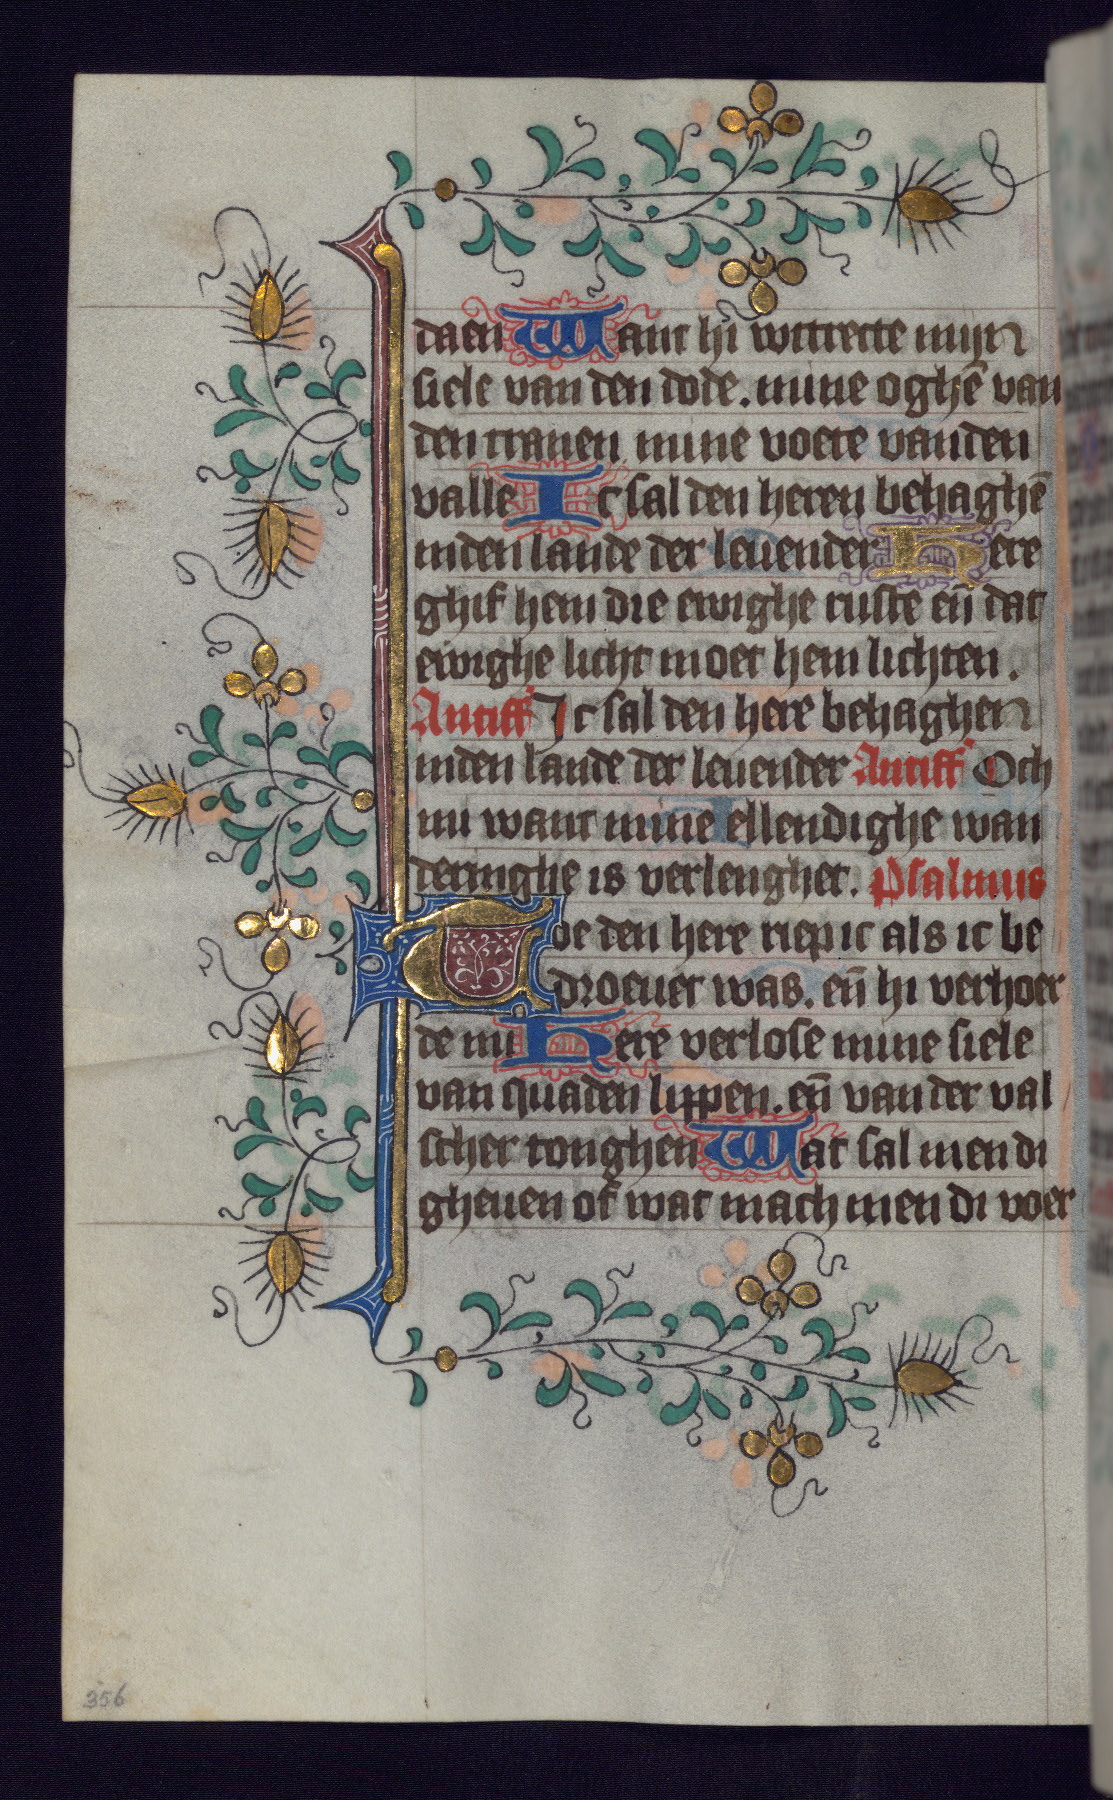 daen Want hi wttrecte mijn
siele van den dode. mine oghē van
den tranen mine voete vanden
valle Ic sal den heren behaghē
inden lande der leuender Here
ghif hem die ewighe ruste eñ dat
ewighe licht moet hem lichten.
Antiff' Ic sal den here behaghen
inden lande der leuender Antiff' Och
mi want mine ellendighe wan
deringhe is verlenghet. Psalmus
Toe den here riep ic als ic be
droeuet was. eñ hi verhoer
de mi Here verlose mine siele
van quaden lippen. eñ van der val
scher tonghen Wat sal men di
gheuen of wat mach men di voer
356